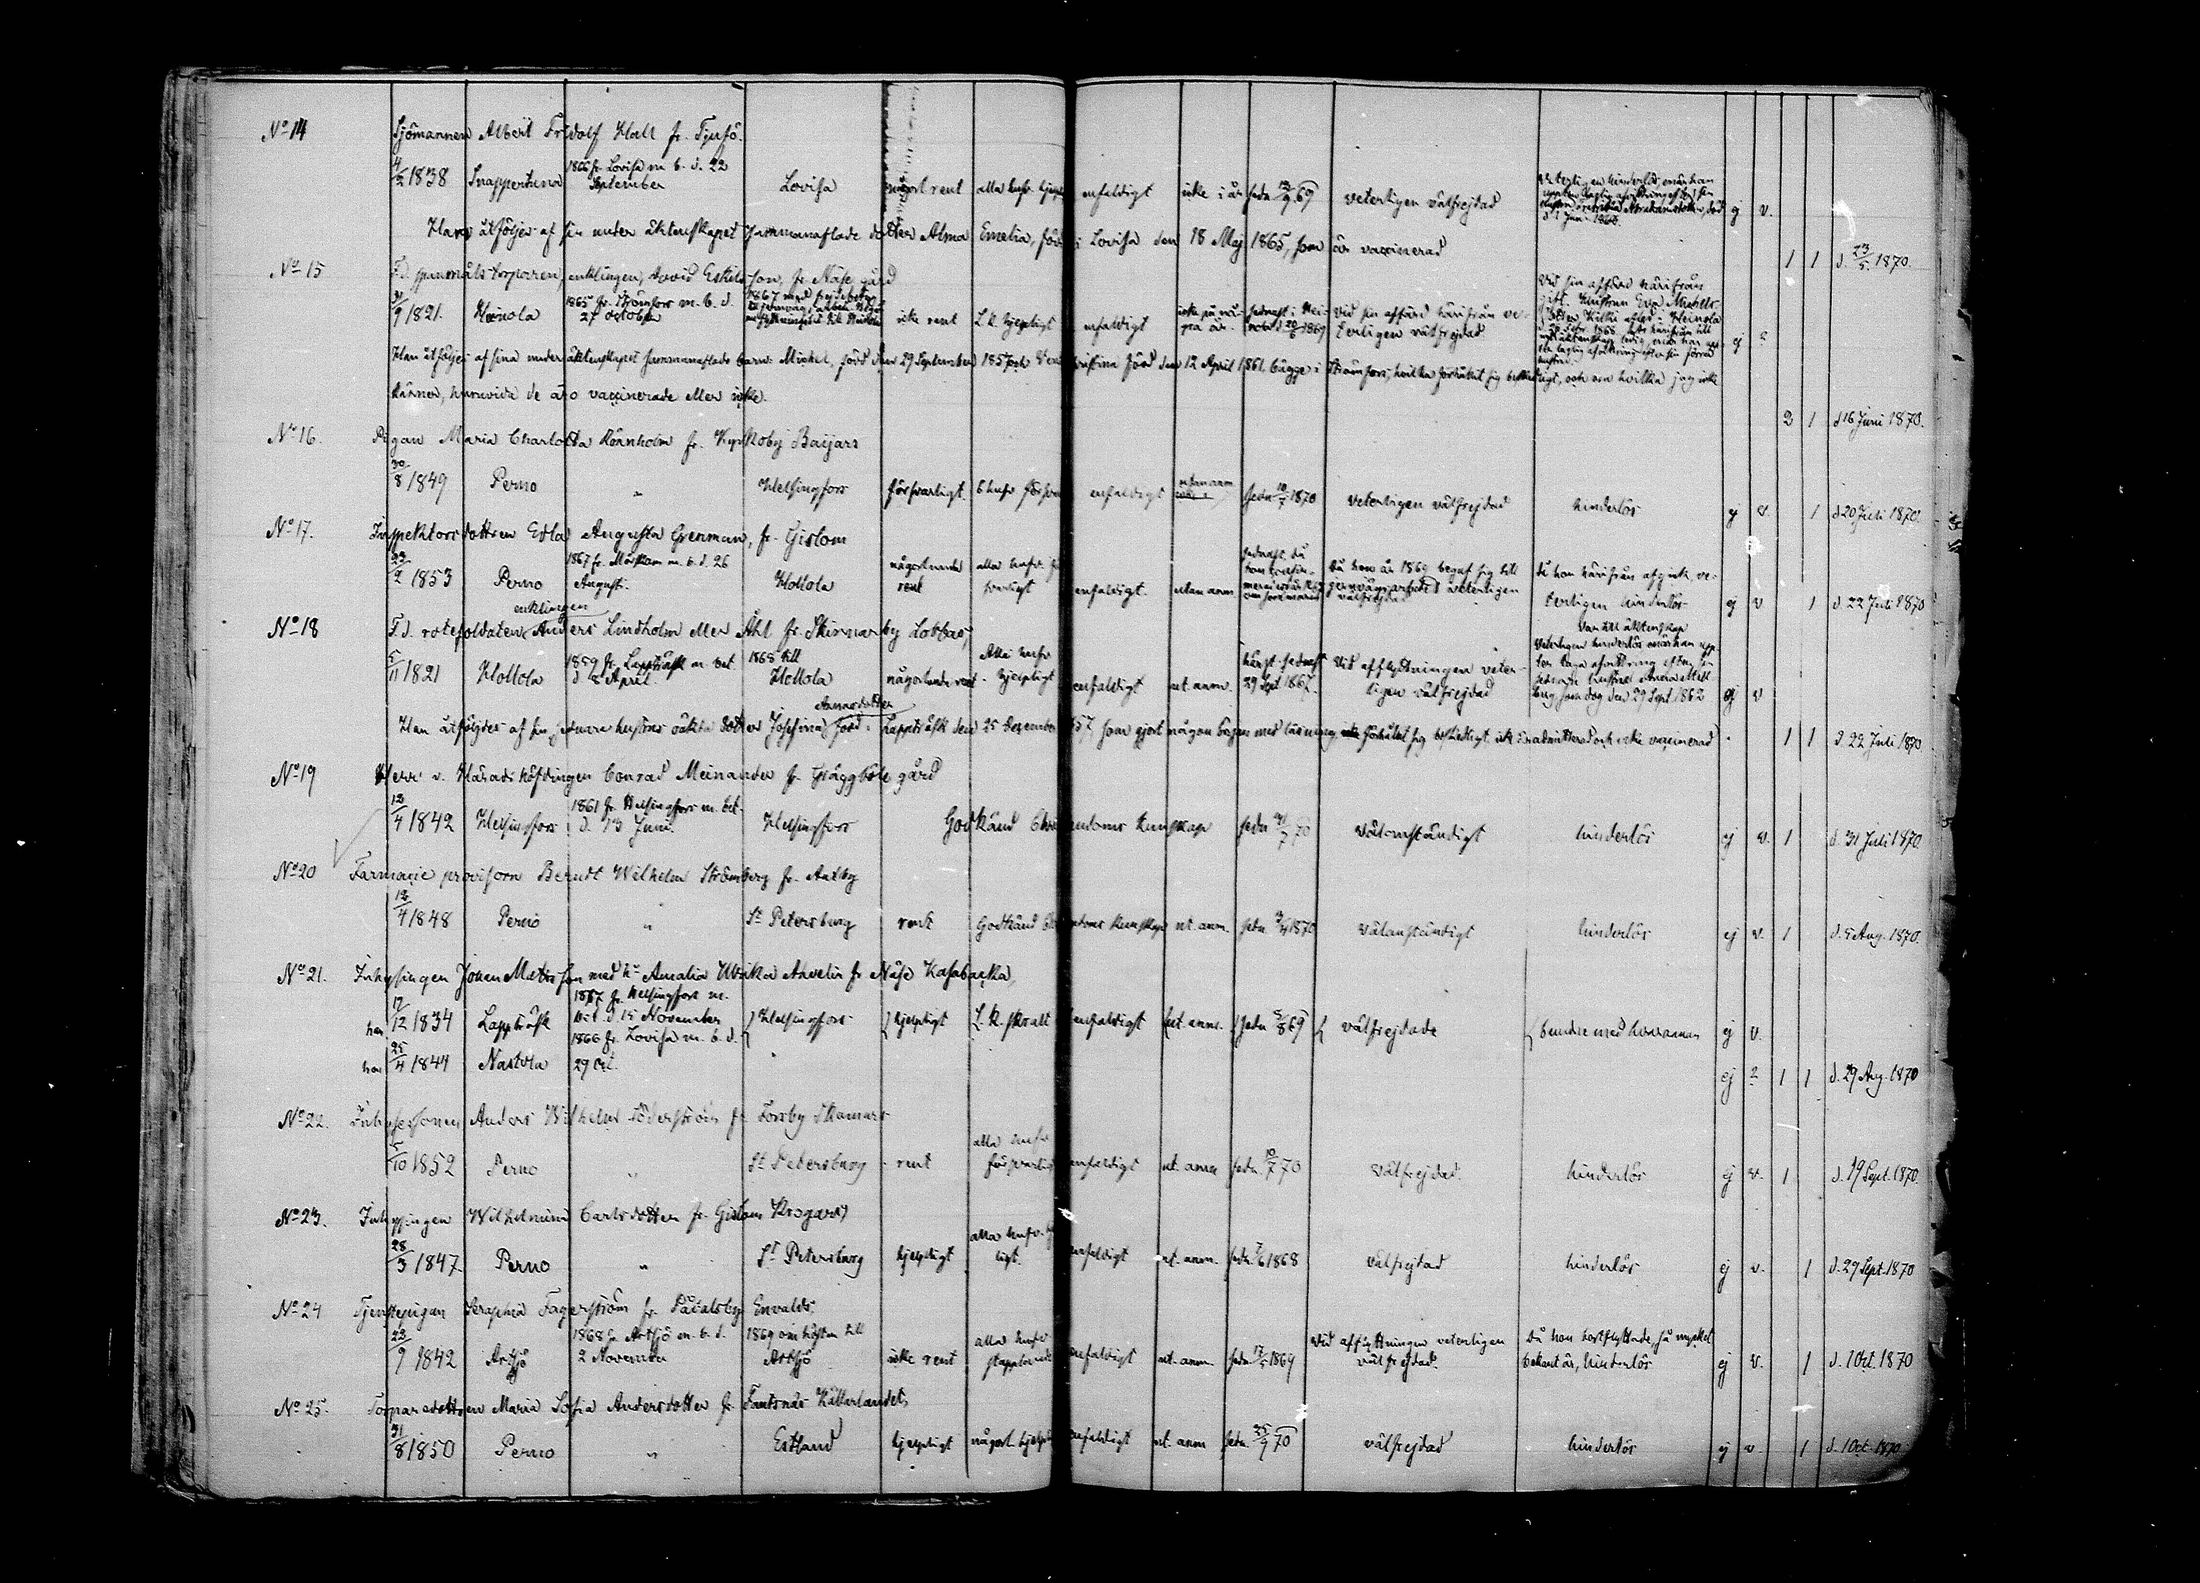 No 14 Sjömannen Albert Fridolf Hall fr. Tjusö.
4/2 1838 Snappertuna 1866 fr. Lovisa m. b. d. 22 September Lovisa någorl. rent alla hufv. enfaldigt icke i år sedn 12/9 69 veterligen välfrejdad ej v.
Han åtföljes af sin under äktenskapet sammanaflade dotter Alma Emelia, född i Lovisa den 18 Maj 1865, som är vaccinerad
1 1 d. 23/5. 1870.
No 15 F.d. enklingen David fr. Näse gård
9 1821. Heinola 1865 fr. Strömfors m. b. d. 27 October icke rent L. k. hjelpligt enfaldigt vid sin affärd härifrån veterligen välfrejdad ej ?
Han åtföljes af sina under äktenskapet sammanaflade barn: Michel, född den 29 September 1857 och född den 12 April 1861, bägge i Strömfors, hvilka förhållit sig och om hvilka jag icke
känner, huruvida de äro vaccinerade eller icke.
2 1 d 16 Juni 1870.
No 16. Pigan Maria Charlotta Rönnholm fr. Kyrkoby Baijars
30/8 1849 Perno " Helsingfors försvarligt. enfaldigt utan anm sedn 10/7 1870 veterligen välfrejdad hinderlös ej v. 1 d 20 Juli 1870.
No 17. Inspektorsdottren Edla Augusta Grenman, fr. Gislom
23/2 1853 Perno 1867 fr. Mörskom m. b. d. 26 August. Hollola någorlunda rent alla hufv. enfaldigt. utan anm då hon år 1869 begaf sig till jernvägsarbetet veterligen välfrejdad då hon härifrån afgick veterligen hinderlös ej v 1 d. 22 Juli 1870
No 18 F.d. rotesoldaten enklingen Anders Lindholm eller Åhl fr. Skinnarby Lobbas,
5/11 1821 Hollola 1859 fr. Lappträsk m. bet. d. 8 April. 1868 till Hollola någorlunda rent alla hufv hjelpligt enfaldigt ut. anm. 29 Sept 1867. vid afflyttningen veterligen välfrejdad ej v
Han åtföljes af sin hustrus oäkta dotter Josefina Annasdotter, född i Lappträsk den 25 December som gjort någon början med läsning, förhållit sig beskedligt, icke är admitterad och icke vaccinerad
1 1 d. 22 Juli 1870
No 19 Herr v. Häradshöfdingen Conrad Meinander fr. Gräggböle gård
12/4 1842 Helsingfors 1861 fr. Helsingfors m. bet. d. 13 Juni. Helsingfors Godkänd Christendoms kunskap sedn 31/7 70 välanständigt hinderlös ej v. 1 d. 31 Juli 1870
No 20 Farmacie provisorn Berndt Wilhelm Strömberg fr. Antby
12/4 1848 Perno " St Petersburg rent Godkänd Christendoms kunskap ut. anm. sedn 1870 välanständigt hinderlös ej v. 1 d. 5 Aug. 1870.
No 21. Inhysingen Johan Matsson med h: Amalia Ulrika Ahvelin fr. Näse Kasabacka,
han 17/12 1834 Lappträsk 1867 fr. Helsingfors m. bet. d. 15 November } Helsingfors } hjelpligt { L. k. skralt { enfaldigt { ut. anm. { sedn 5/8 69 { välfrejdade { bundne med hvarannan ej v.
hon 25/4 1844 Nastola 1866 fr. Lovisa m. b. d. 29 Oct. ej ? 1 1 d. 29 Aug. 1870
No 22. Anders Wilhelm Söderström fr Torsby Skamars
5/10 1852 Perno " St Petersburg rent alla hufv försvarligt enfaldigt ut. anm sedn. 10/7 70 välfrejdad. hinderlös ej v. 1 d. 19 Sept. 1870
No 23. Inhysingen Wilhelmina Carlsdotter fr. Gislom Krogars
28/3 1847 Perno " St Petersburg hjelpligt alla hufv. enfaldigt ut. anm. sedn 7/6 1868 välfrejdad hinderlös ej v. 1 d. 29 Sept. 1870
No 24 Tjenstepigan Seraphia Fagerström fr. Påvalsby Envalds
23/9 1842 Artsjö 1868 fr Artsjö m. b. d. 2 November 1869 om hösten till Artsjö icke rent alla hufv. staplande enfaldigt ut. anm. 1869 vid afflyttningen veterligen välfrejdad. då hon bortflyttade, så mycket bekant är, hinderlös ej v. 1 d. 1 Oct. 1870
No 25. Torparedottren Maria Sofia Andersdotter fr. Fantsnäs Källarlandet,
31/8 1850 Perno " Estland hjelpligt någorl. hjelpl. enfaldigt ut. anm sedn. 25/9 70 välfrejdad hinderlös ej v 1 d. 1 Oct. 1870